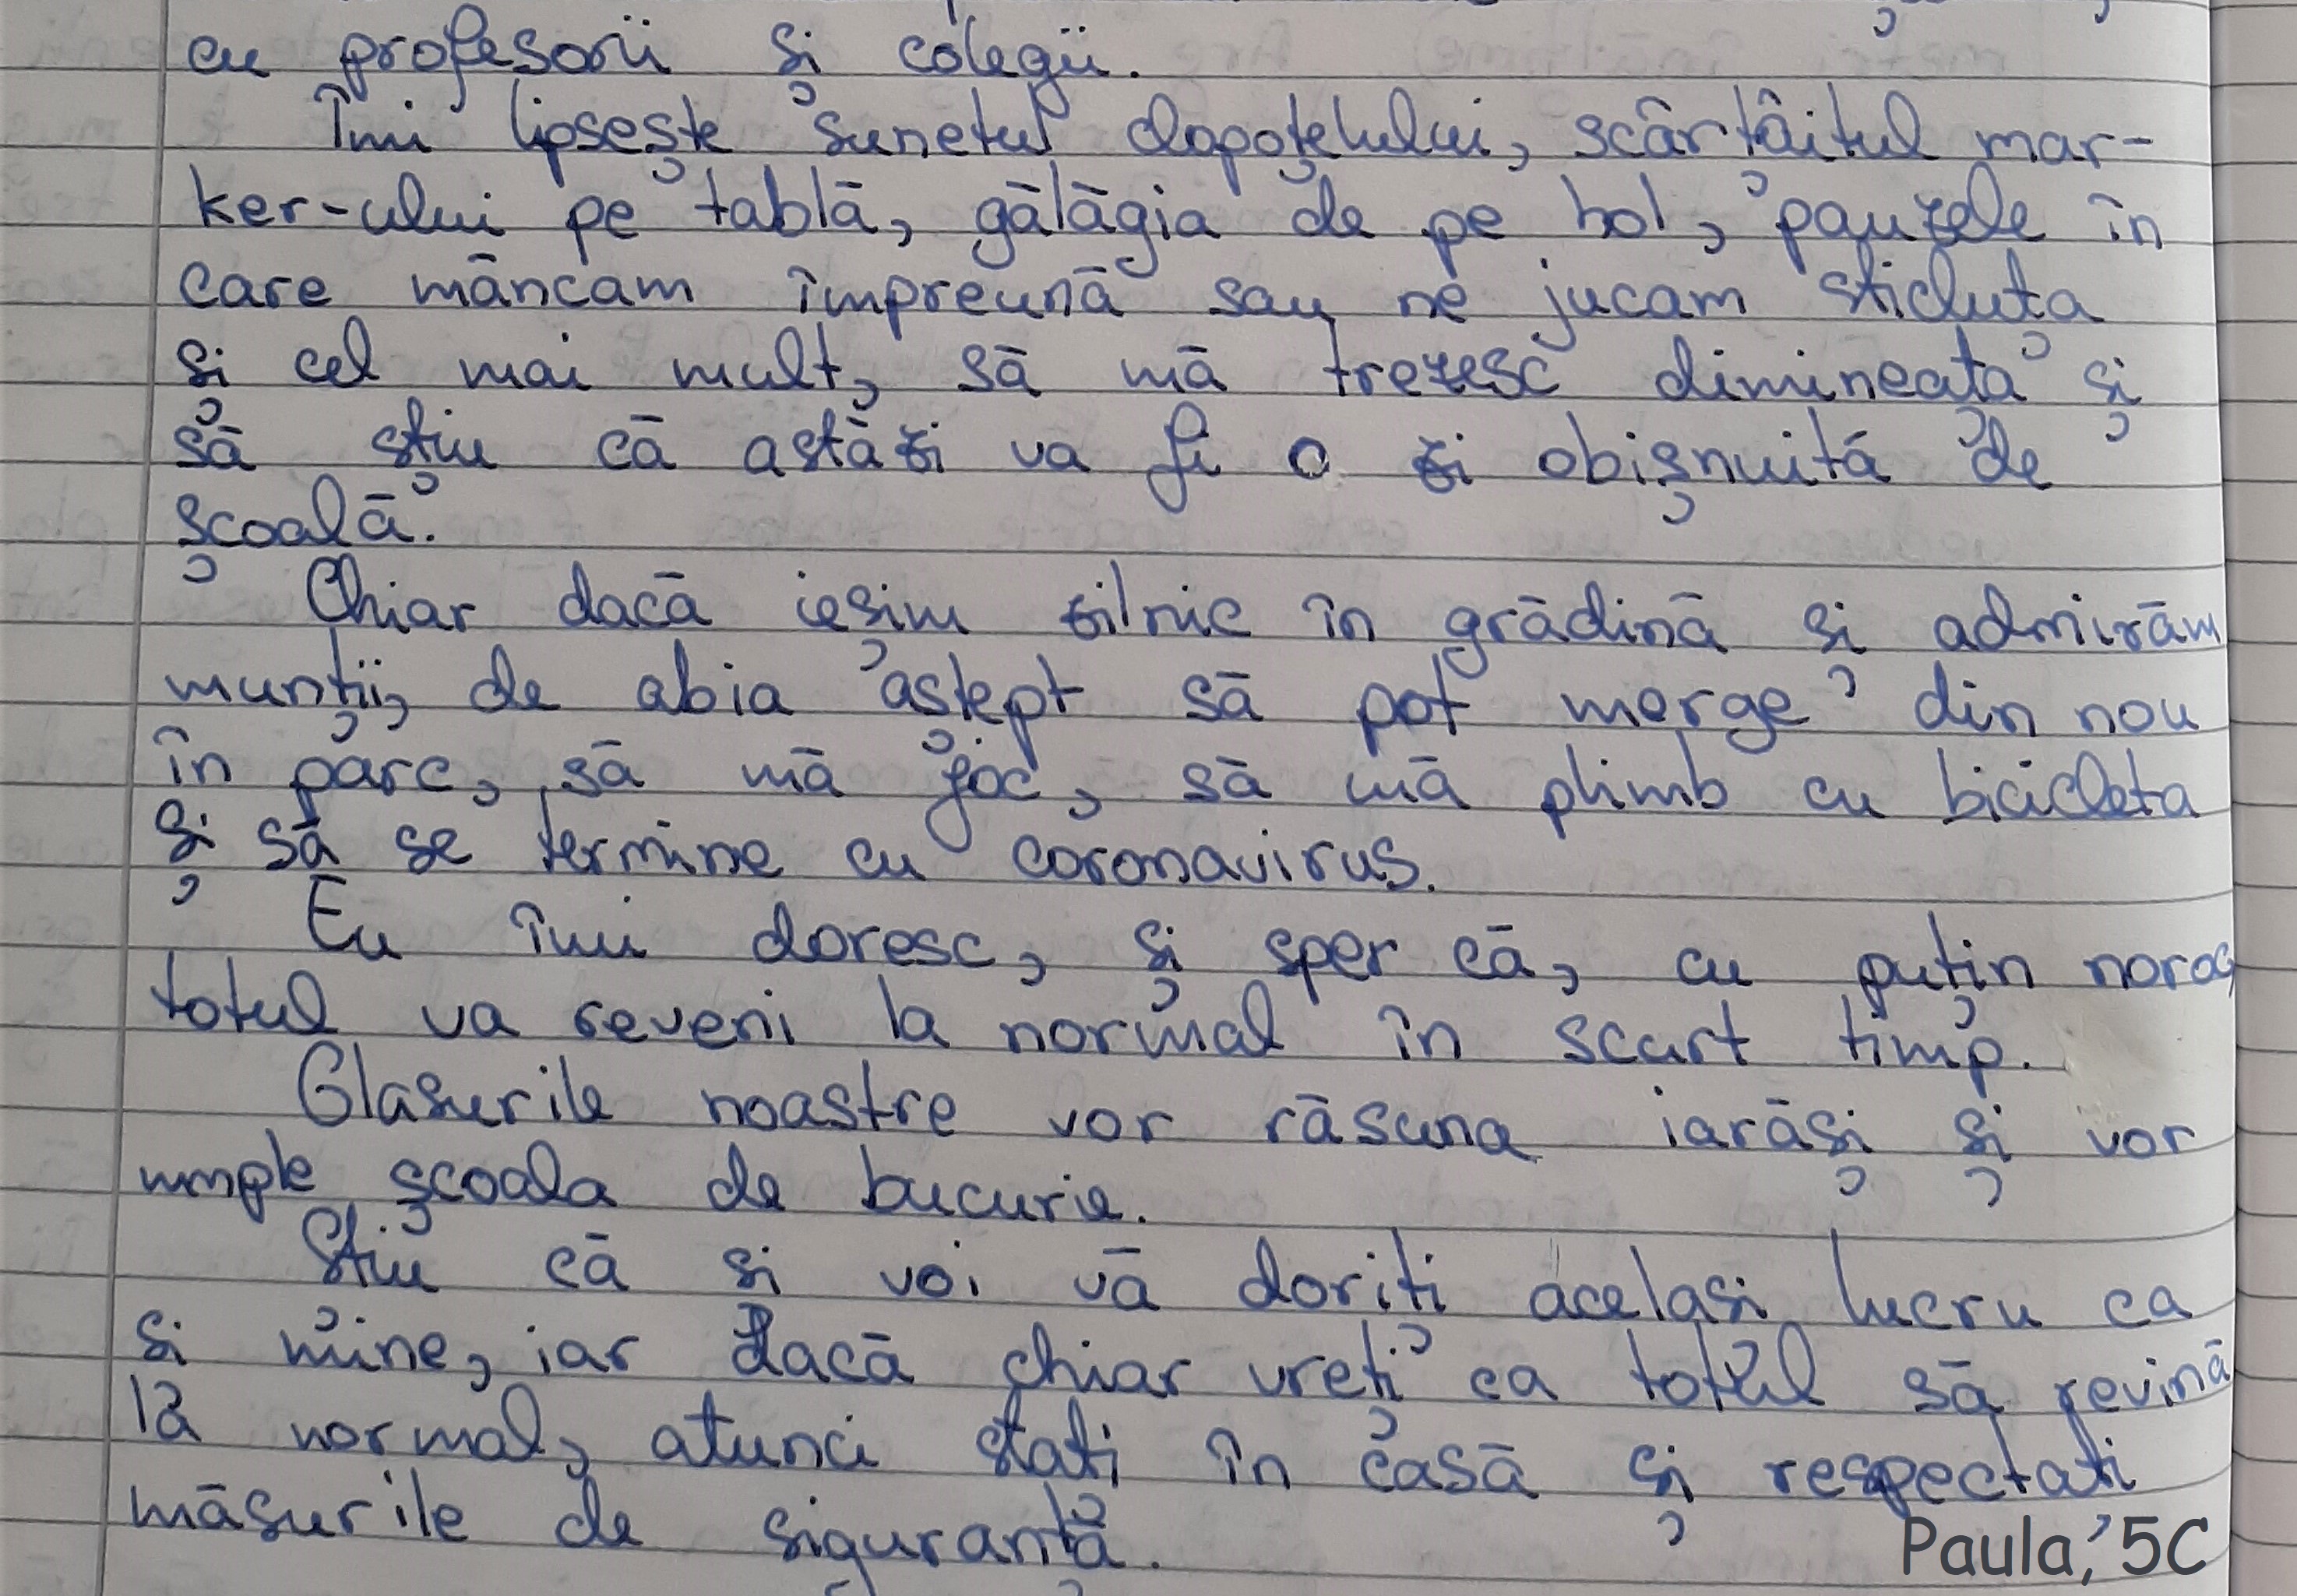 cu profesorii și colegii.
Îmi lipsește sunetul clopoțelului, scârțâitul mar-
ker-ului pe tablă, gălăgia de pe hol, pauzele în
care mâncam împreună sau ne jucam sticluța
și cel mai mult, să mă trezesc dimineața și
să știu că astăzi va fi o zi obișnuită de
școală.
Chiar dacă ieșim zilnic în grădină și admirăm
munții, de abia aștept să pot merge din nou
în parc, să mă joc, să mă plimb cu bicicleta
și să se termine cu coronavirus.
Eu îmi doresc, și sper că, cu puțin noroc,
totul va reveni la normal în scurt timp.
Glasurile noastre vor răsuna iarăși și vor
umple școala de bucurie.
Știu că și voi vă doriți același lucru ca
și mine, iar dacă chiar vreți ca totul să revină
la normal, atunci stați în casă și respectați
măsurile de siguranță.
Paula, 5C